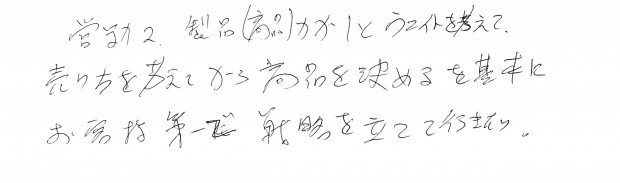 営業力2. 製品(商品)力が1とウエイトを考えて、
売り方を考えてから商品を決めるを基本に
お客様第一で戦略を立てて行きたい。